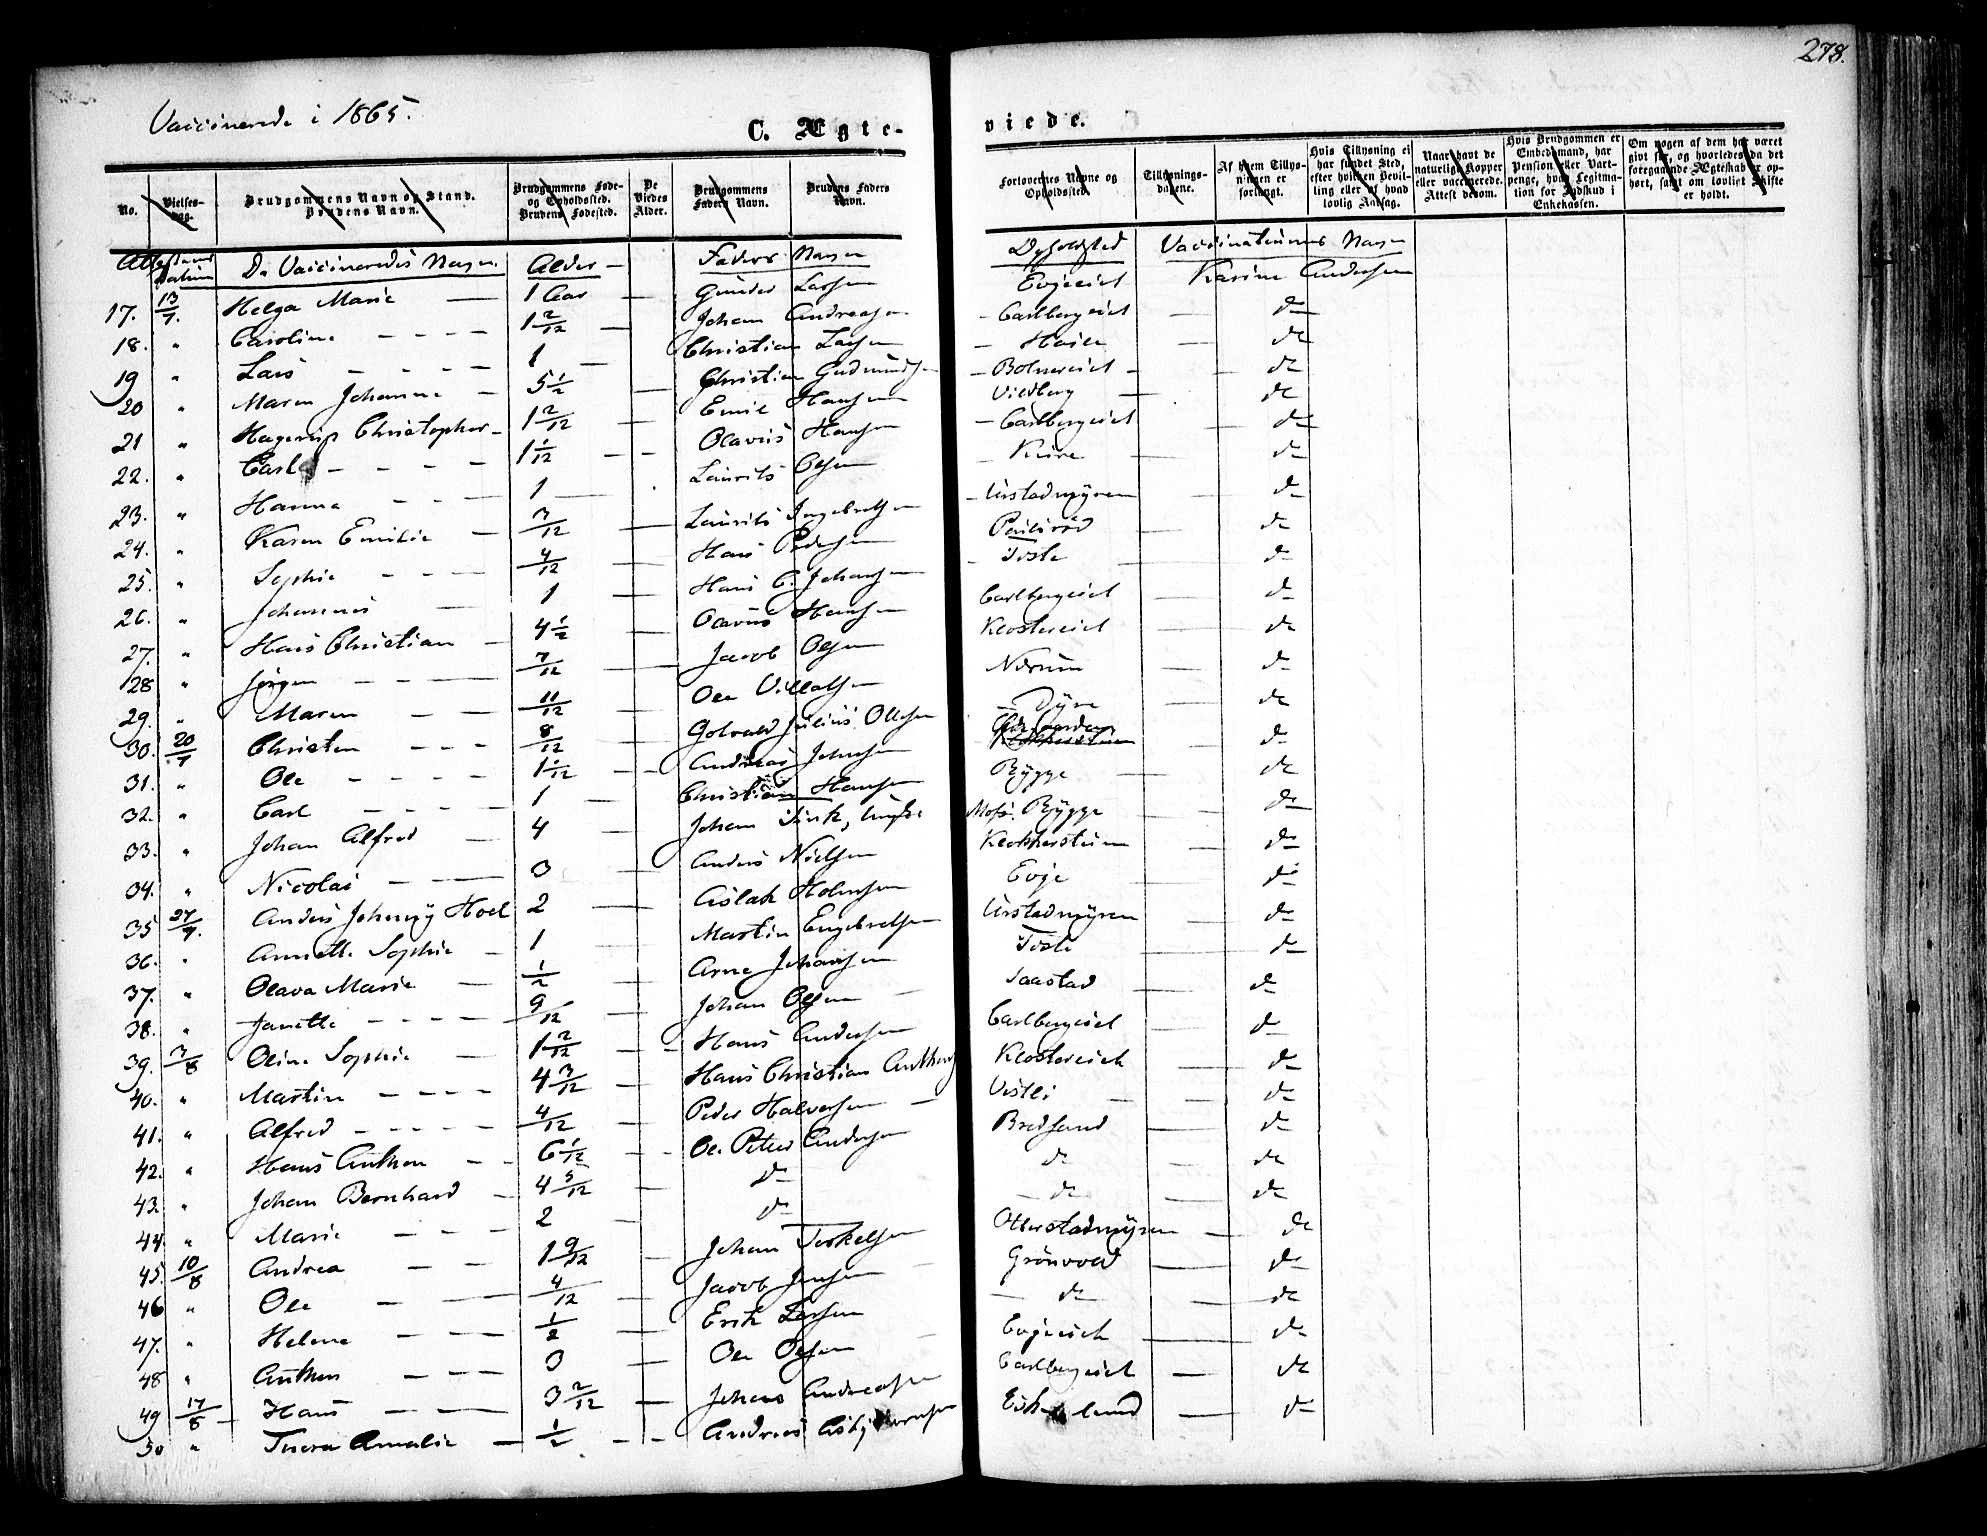 278.
Vaccinerede i 1865.
C. Ægteviede.
No. Vielsesdag. Brudgommens Navn og Stand. Brudens Navn. Brudgommens Føde- og Opholdssted. Brudens Fødested. De Viedes Alder. Brudgommens Faders Navn. Brudens Faders Navn. Forlovernes Navne og Opholdssted. Tillysningsdagene. Af hvem Tillysningen er forlangt. Hvis Tillysning ei har fundet Sted, efter hvilken Bevilling eller af hvad lovlig Aarsag. Naar havt de naturlige Kopper eller vaccinerede. Attest derom. Hvis Brudgommen er Embedsmand, har Pension eller Vartpenge, hvad Legitmation for Indskud i Enkekassen. Om nogen af dem har været gift før, og hvorledes da det foregaaende Ægteskab er ophørt, samt om lovligt Skifte er holdt.
Attestens Datum De Vaccineredes Navn. Alder Faders Navn Opholdsted Vaccinateurens Navn
17. 13/7. Helga Marie 1 Aar Gunder Larsen Evjeeiet Karine Andersen
18. " Caroline 1 2/12 Johan Andreasen Carlbergeiet do
19 " Lars 1 Christian Larsen Høien do
20 " Maren Johanne 5 1/2 Christian Gudmunds Botnereiet do
21 " Hagerup Christopher 1 2/12 Emil Hansen Vildberg do
22. " Carl 1 1/12 Olavus Hansen Carlbergeiet do
23. " Hanna 1 Laurits Olsen Kure do
24. " Karen Emilie 3/12 Laurits Ingebretsen Urstadmyren do
25. " Sophie 4/12 Hans Pedersen Paulsrød do
26. " Johannes 1 Hans C. Johansen Toste do
27. " Hans Christian 4 1/2 Olavus Hansen Carlbergeiet do
28 " Jørgen 7/12 Jacob Olsen Klostereiet do
29. " Maren 11/12 Ole Villatsen Nærum do
30. 20/7 Christen 8/12 Gotvald Julius Ottesen Dyre do
31. " Ole 1 1/12 Andreas Johnsen do
32. " Carl 1 Christian Hansen Rygge do
33. " Johan Alfred 4 Johan Moss. Rygge do
34. " Nicolai 3 Anders Nielsen Klokkerstuen do
35 27/7. Anders Johnny Hoel 2 Aslak Holmsen Evje do
36. " Annette Sophie 1 Martin Engebretsen Urstadmyren do
37. " Olava Marie 1/2 Arne Johansen Toste do
38. " Janette 9/12 Johan Olsen Saastad do
39. 3/8 Oline Sophie 1 2/12 Hans Andersen Carlbergeiet do
40. " Martin 4 3/12 Hans Christian Anthons Klostereiet do
41. " Alfred 4/12 Peder Halvorsen Vestli do
42. " Hans Anthon 6 1/12 Ole Peter Andersen Bredsand do
43. " Johan Bernhard 4 5/12 do do do
44. " Marie 2 do do do
45. 10/8 Andrea 1 9/12 Johan Terkelsen Otterstadmyren do
46 " Ole 4/12 Jacob Jensen Grönvold do
47. " Helene 1/2 Erik Larsen do do
48 " Anthon 3 Ole Olsen Evjeeiet do
49 17/8 Hans 3 2/12 Johan Andreasen Carlbergeiet do
50 " Amalie 1/2 Andreas lund do